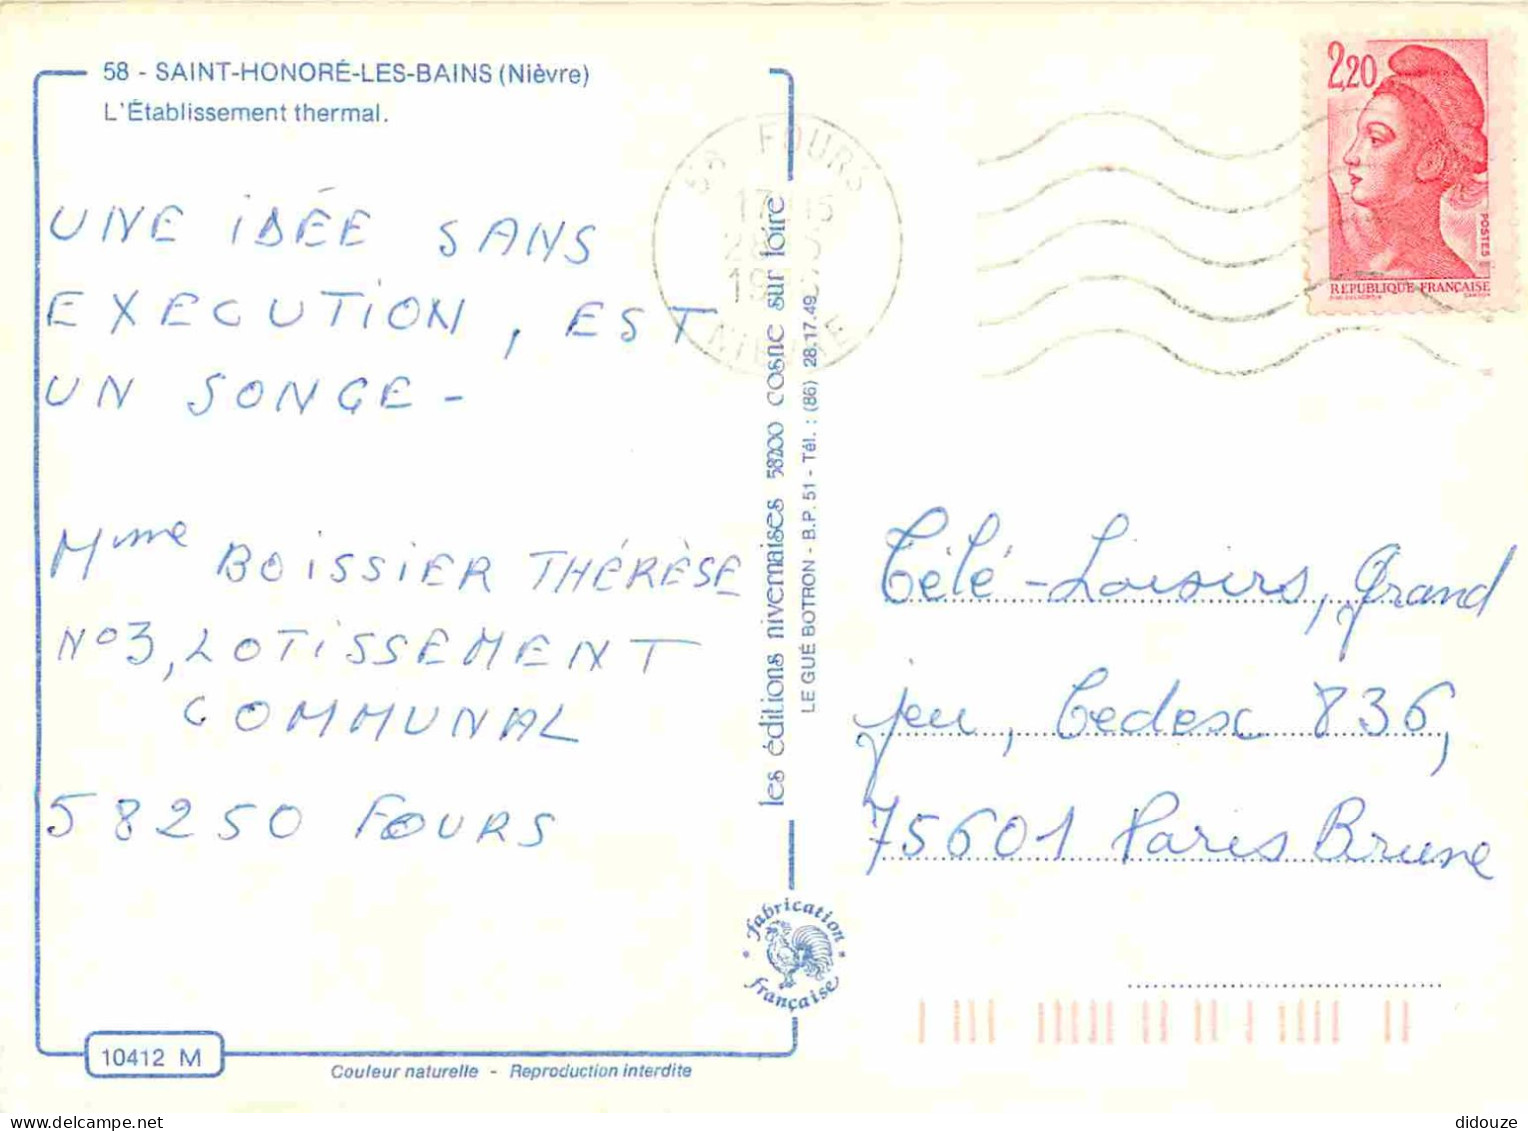 58 - SAINT-HONORÉ-LES-BAINS (Nièvre)
L'Établissement thermal.
UNE IDÉE SANS
EXECUTION, EST
UN SONGE -
Mme BOISSIER THÉRÈSE
N°3, LOTISSEMENT
COMMUNAL
58250 FOURS
10412 M
Couleur naturelle - Reproduction interdite
58 FOURS
17 15
28 5
19
NIEVRE
les éditions nivernaises 58200 cosne sur loire
LE GUÉ BOTRON - B.P. 51 - Tél. : (86) 28.17.49
Fabrication
française
2,20
POSTES
RÉPUBLIQUE FRANÇAISE
Télé-Loisirs, Grand
jeu, Cedex 836,
75601 Paris Brune
didouze